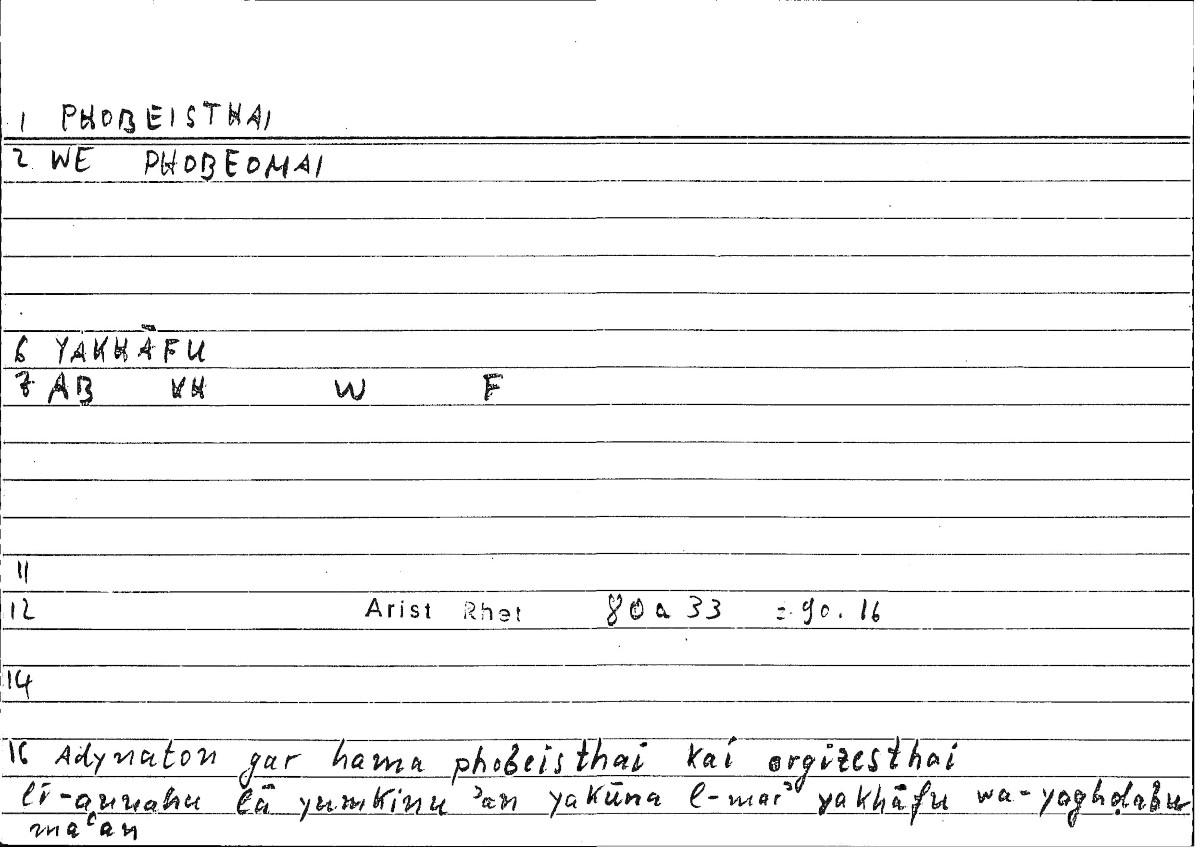 1 PHOBEISTHAI
2 WE PHOBEOMAI
6 YAKHĀFU
7 AB KH W F
11
12 Arist Rhet 80a 33 = 90.16
14
16 Adynaton gar hama phobeisthai kai orgizesthai
li-annahu lā yumkinu ʾan yakūna l-marʾ yakhāfu wa-yaghḍabu
maʿan